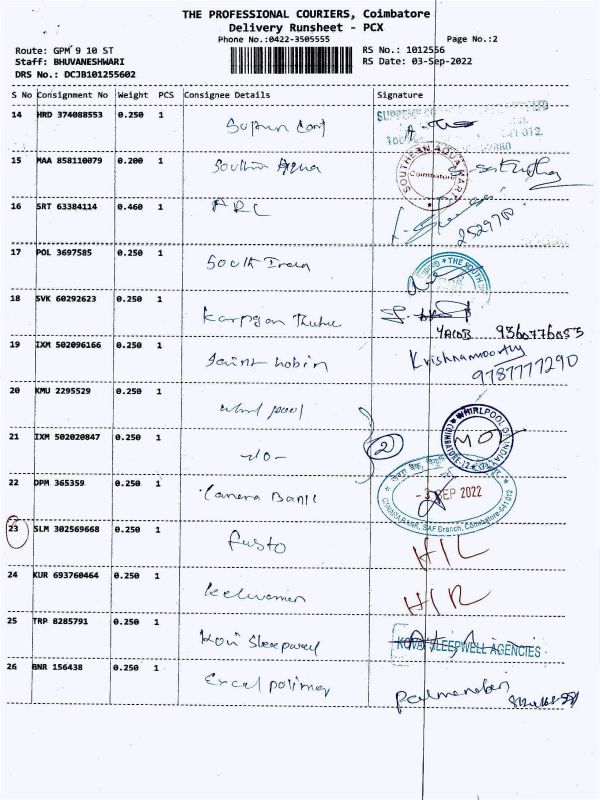 THE PROFESSIONAL COURIERS, Coimbatore
Delivery Runsheet - PCX
Phone No.:0422-3505555 Page No.:2
Route: GPM 9 10 ST RS No.: 1012556
Staff: BHUVANESHWARI RS Date: 03-Sep-2022
DRS No.: DCJB101255602
S No Consignment No Weight PCS Consignee Details Signature
14 HRD 374088553 0.250 1
15 MAA 858110079 0.200 1 Southern Aqua SOUTHERN AQUA MARIA Coimbatore
16 SRT 63384114 0.460 1 ARC
2529700
17 POL 3697585 0.250 1 South India THE SOUTH
18 SVK 60292623 0.250 1
YACOB 9360776055
19 IXM 502096166 0.250 1 Krishnamoorthy
9787777290
20 KMU 2295529 0.250 1 whirl pool WHIRLPOOL OF INDIA
21 IXM 502020847 0.250 1 -do- 2 COIMBATORE-12
22 DPM 365359 0.250 1 Canara Bank - 3 SEP 2022
CANARA BANK, SAF Branch, Coimbatore-641 012
23 SLM 302569668 0.250 1 fusto
24 KUR 693760464 0.250 1
25 TRP 8285791 0.250 1 Kovi Sleepwell KOVAI SLEEPWELL AGENCIES
26 BNR 156438 0.250 1 Excel polimer